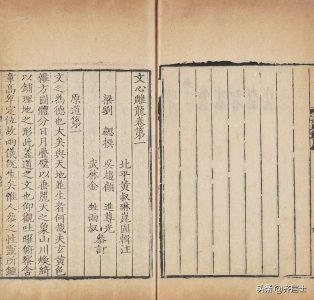 文心雕龍卷第一
北平黃叔琳崑圃輯注
梁劉勰撰 吳趨顧 進尊光
武林金 甡雨叔 參訂
原道第一
文之爲德也大矣與天地並生者何哉夫玄黃色
雜方圓體分日月疊璧以垂麗天之象山川煥綺
以鋪理地之形此蓋道之文也仰觀吐曜俯察含
章高卑定位故兩儀既生矣惟人參之性靈所鍾